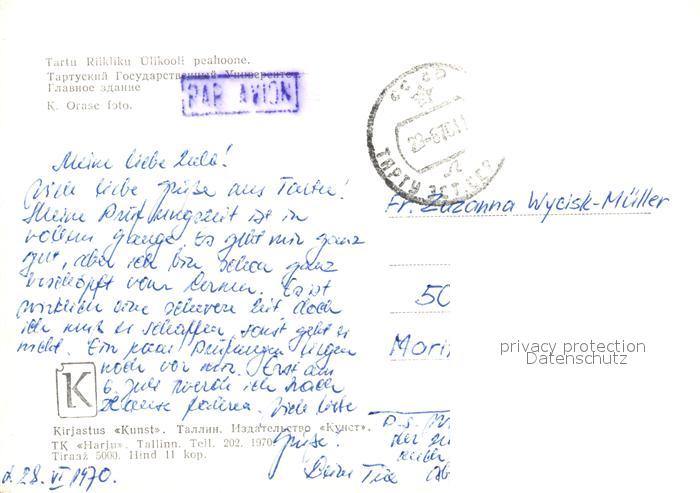 Tartu Riikliku Ülikooli peahoone.
Тартуский Государственный Университет.
Главное здание
K. Orase foto.
PAR AVION
ТАРТУ ЭСТ.ССР
Meine liebe Zula!
Viele liebe Grüße aus Tartu!
Meine Prüfungszeit ist in
vollem Gange. Es geht mir ganz
gut, aber ich bin schon ganz
erschöpft vom Lernen. Es ist
wirklich eine schwere Zeit, doch
ich muß es schaffen, sonst geht es
nicht. Ein paar Prüfungen liegen
noch vor mir. Erst am
6. Juli werde ich nach
Hause fahren. Viele liebe
Grüße!
Deine Tiia
d. 28. VI 1970.
K
Kirjastus «Kunst». Таллин. Издательство «Кунст».
TK «Harju». Tallinn. Tell. 202. 1970
Tiraaž 5000. Hind 11 kop.
Fr. Zuzanna Wycisk-Müller
50
Mori
P.S.
der
privacy protection
Datenschutz